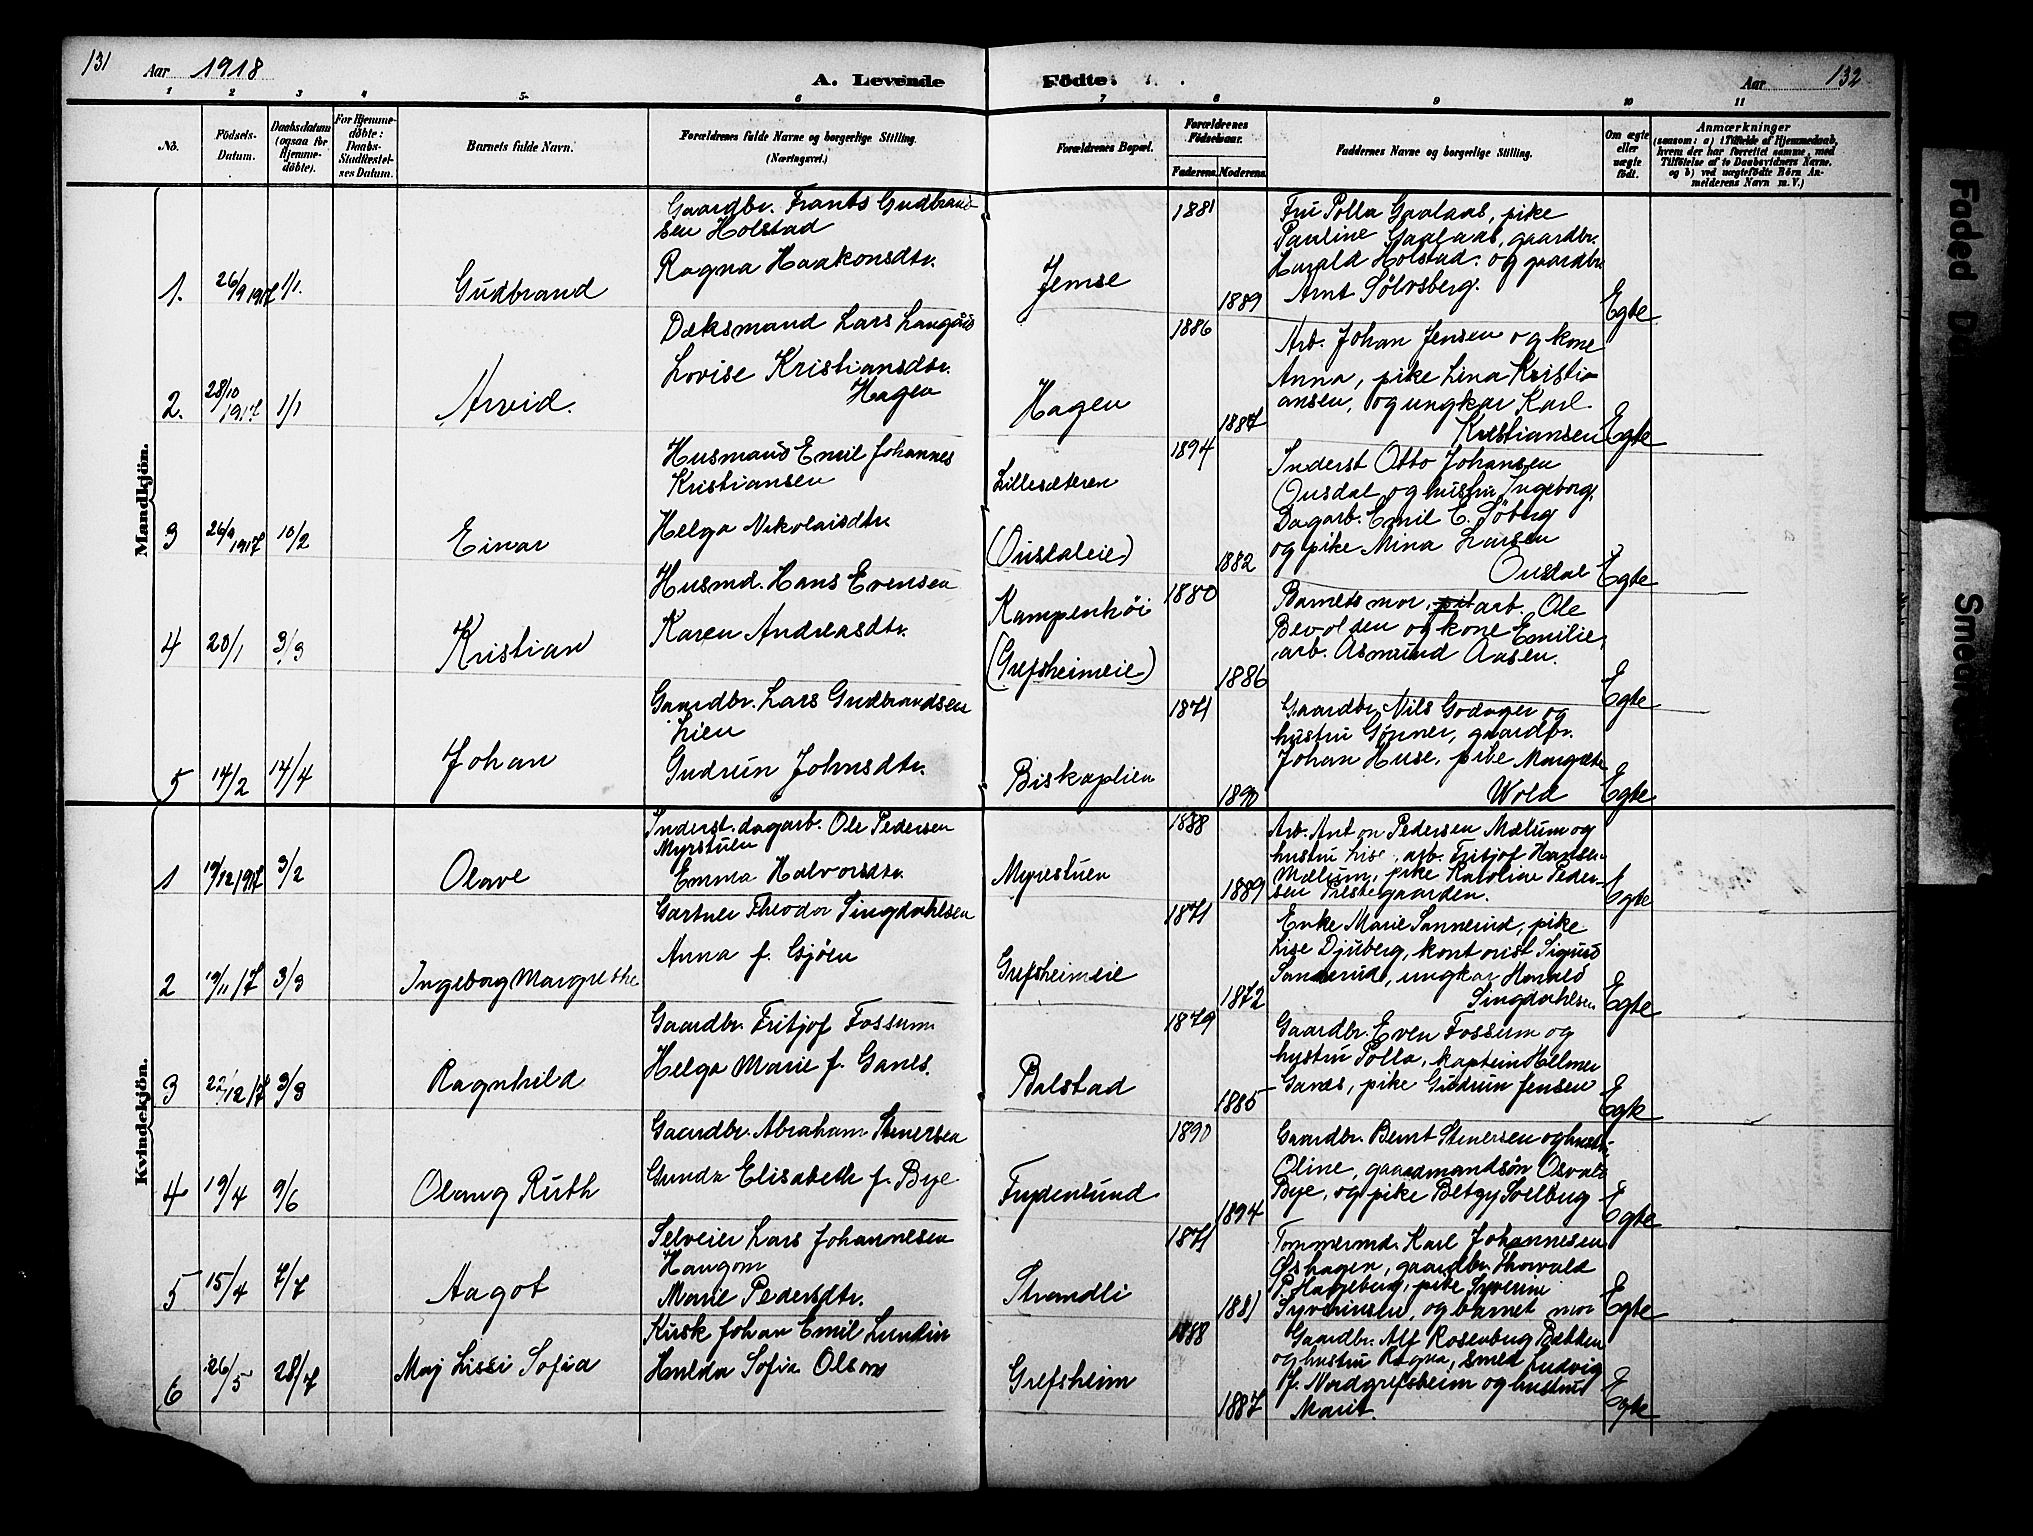 131
Aar 1918
A. Levende
Födte.
Aar
132
1 2 3 4 5 6 7 8 9 10 11
No.
Födsels-
Datum.
Daabsdatum
(ogsaa for
Hjemme-
døbte).
For Hjemme-
døbte:
Daabs-
Stadfæstel-
ses Datum.
Barnets fulde Navn.
Forældrenes fulde Navne og borgerlige Stilling.
(Næringsvei.)
Forældrenes Bopæl.
Forældrenes
Födselsaar.
Faderens. Moderens.
Faddernes Navne og borgerlige Stilling.
Om ægte
eller
uægte
födt.
Anmærkninger
(saasom: a) i Tilfælde af Hjemmedaab,
hvem der har forrettet samme, med
Tilföielse af to Daabsvidners Navne,
og b) ved uægtefödte Börn An-
melderens Navn m. V.)
Mandkjön.
1. 26/9 1917 1/1. Gudbrand
Gaardbr. Frants Gudbrand
sen Holstad
Ragna Haakonsdtr.
Jemse
1881
1889
Fru Polla Gaalaas, pike
Pauline Gaalaas, gaardbr.
Harald Holstad. og gaardbr
Arnt Sølvsberg.
Egte
2. 28/10 1917 1/1 Arvid.
Dæksmand Lars
Lovise Kristiansdtr.
Hagen
Hagen
1886
1887
Arb. Johan Jensen og kone
Anna, pike Lina Kristi
ansen, og ungkar Karl
Kristiansen
Egte
3 26/9 1917 10/2 Einar
Husmand Emil Johannes
Kristiansen
Helga Nikolaisdtr
Lillesæteren
(Ousdaleie)
1894
1882
Inderst Otto Johansen
Ousdal og hustru Ingeborg,
Dagarb. Emil E. Søberg
og pike Mina Larsen
Ousdal
Egte
4 20/1 3/3 Kristian
Husmd. Hans Evensen
Karen Andreasdtr.
Kampenhöi
(Grefsheimeie)
1880
1886
Barnets mor, arb. Ole
Bevolden og kone Emilie,
arb. Asmund Aasen.
Egte
5 14/2 14/4 Johan
Gaardbr. Lars Gudbrandsen
Lien
Gudrun Johnsdtr.
Biskoplien
1871
1890
Gaardbr. Nils Godager og
hustru Gønner, gaardbr.
Johan Huse, pike Margrete
Wold
Egte
Kvindekjön.
1 19/12 1917 3/2 Olave
Inderst. dagarb. Ole Pedersen
Myrstuen
Emma Halvorsdtr.
Myrestuen
1888
1889
Arb. Anton Pedersen Mælum og
hustru Lise, arb. Fritjof Hansen
Mælum, pike Karoline Peder-
sen Prestegaarden.
Egte
2 19/11/17 3/3 Ingeborg Margrethe
Gartner Theodor Singdahlsen
Anna f. Gjöen
Grefsheimeie
1871
1872
Enke Marie Sannerud, pike
Lise Djuberg, kontorist Sigurd
Sannerud, ungkar Harald
Singdahlsen
Egte
3 22/12/17 3/3 Ragnhild
Gaardbr. Fritjof Fossum
Helga Marie f. Ganes.
Balstad
1879
1885
Gaardbr. Even Fossum og
hustru Polla, kaptein Helmer
Ganes, pike Gudrun Jensen
Egte
4 19/4 9/6 Olaug Ruth
Gaardbr. Abraham Stenersen
Gunda Elisabeth f. Bye
Frydenlund
1890
1894
Gaardbr. Bernt Stenersen og hustr.
Oline, gaardmandsön Osvald
Bye, og pike Betzy Solberg
Egte
5 15/4 7/7 Aagot
Selveier Lars Johannesen
Haugom
Marie Pedersdtr.
Strandli
1871
1881
Tommermd. Karl Johannesen
Öshagen, gaardbr. Thorvald
P. Hageberg, pike Syverine
Syverinsen, og barnet mor
Egte
6 26/5 28/7 Maj Lissi Sofia
Kusk Johan Emil Lundin
Hulda Sofia Olson
Grefsheim
1888
1887
Gaardbr. Alf Rosenberg Bakken
og hustru Ragna, smed Ludvig
J. Nordgrefsheim og hustru
Marit.
Egte
Faded D
Smed